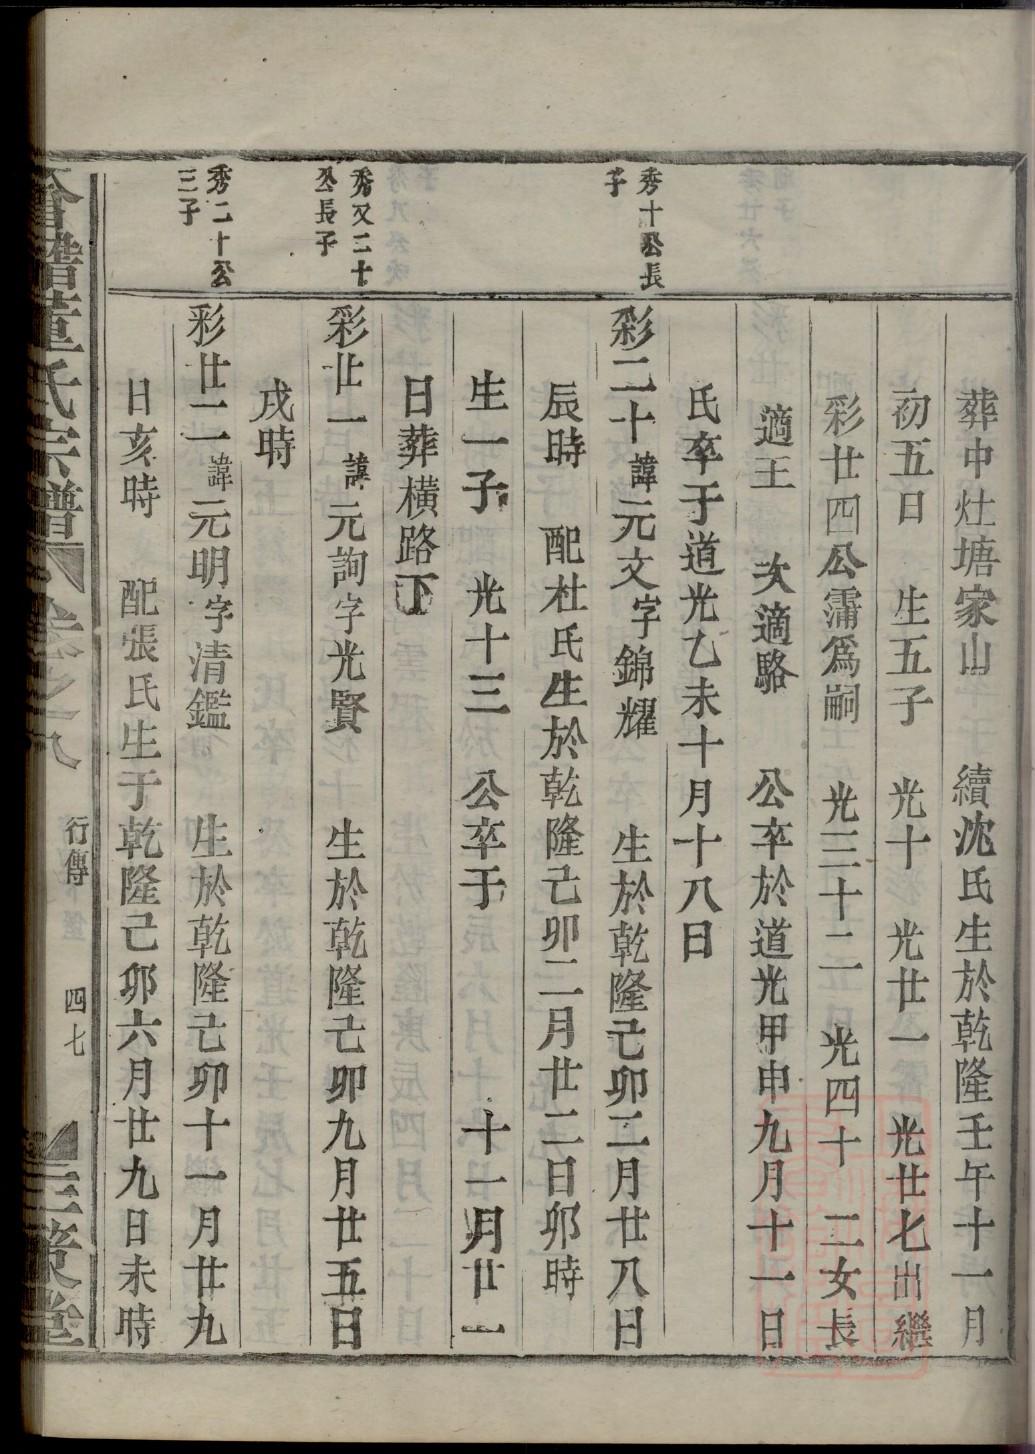 葬中灶塘家山　續沈氏生於乾隆壬午十一月
初五日　生五子　光十　光廿一　光廿七出繼
彩廿四公霈爲嗣　光三十二　光四十　二女長
適王　次適駱　公卒於道光甲申九月十一日
氏卒于道光乙未十月十八日
秀十公長
子
彩二十諱元文字錦耀　生於乾隆己卯二月廿八日
辰時　配杜氏生於乾隆己卯二月廿二日卯時
生一子　光十三　公卒于　十一月廿一
日葬橫路下
秀又二十
公長子
彩廿一諱元詢字光賢　生於乾隆己卯九月廿五日
戌時
秀二十公
三子
彩廿二諱元明字清鑑　生於乾隆己卯十一月廿九
日亥時　配張氏生于乾隆己卯六月廿九日未時
暨陽董氏宗譜　卷之一八　行傳　四七　三策堂